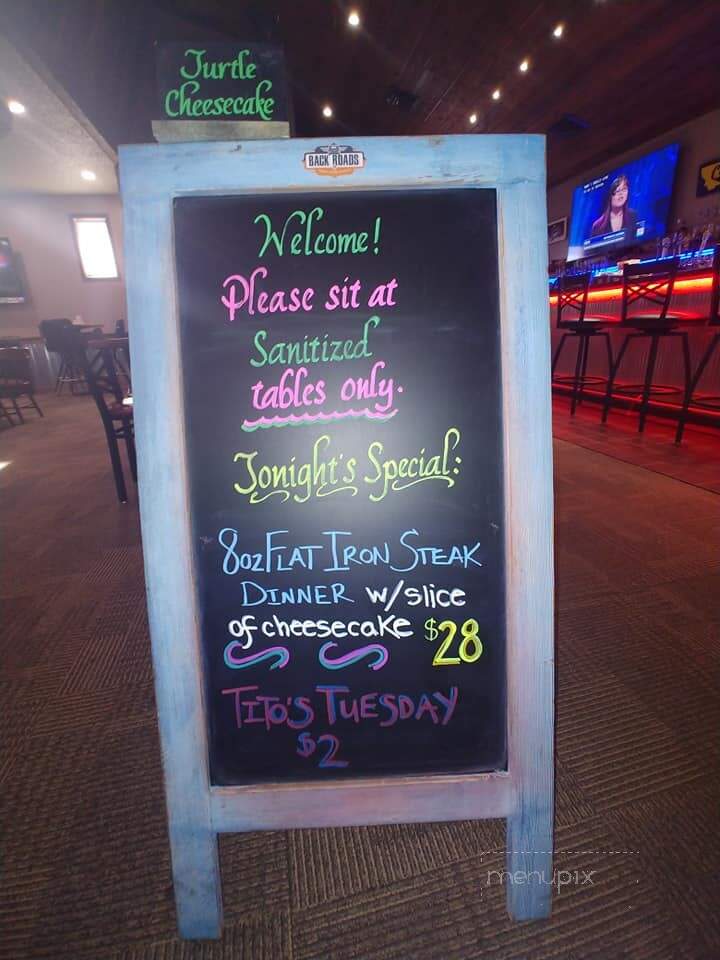 Turtle
Cheesecake
BACK ROADS
Welcome!
Please sit at
Sanitized
tables only.
Tonight's Special:
8oz FLAT IRON STEAK
DINNER w/slice
of cheesecake $28
TITO'S TUESDAY
$2
menupix